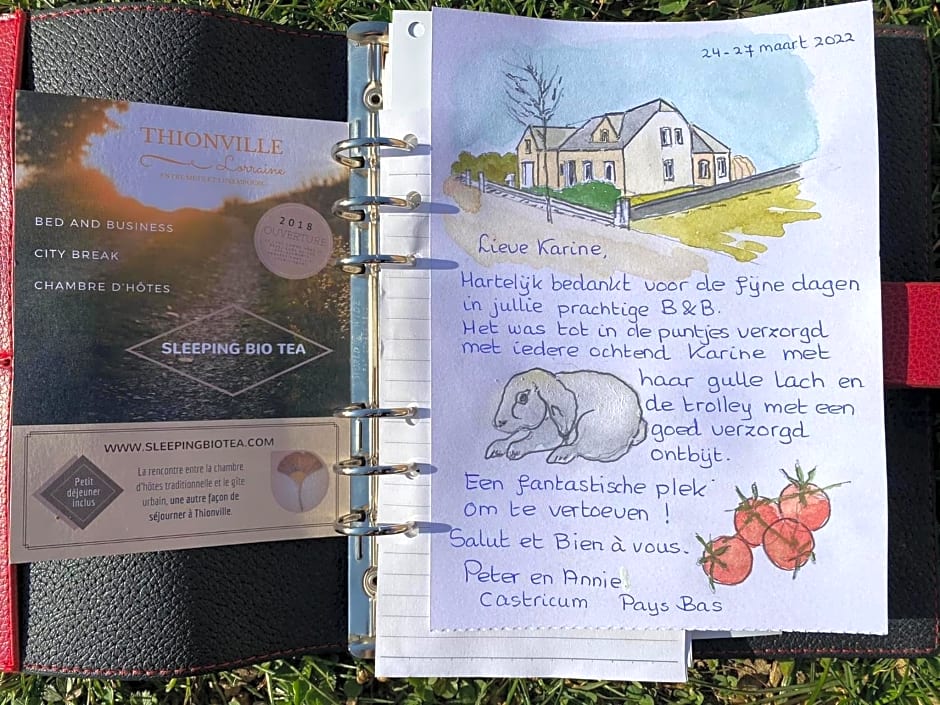 THIONVILLE
Lorraine
ENTRE METZ ET LUXEMBOURG
BED AND BUSINESS
CITY BREAK
CHAMBRE D'HÔTES
2018
OUVERTURE
SLEEPING BIO TEA
WWW.SLEEPINGBIOTEA.COM
Petit
déjeuner
inclus
La rencontre entre la chambre
d'hôtes traditionnelle et le gîte
urbain, une autre façon de
séjourner à Thionville.
24-27 maart 2022
Lieve Karine,
Hartelijk bedankt voor de fijne dagen
in jullie prachtige B&B.
Het was tot in de puntjes verzorgd
met iedere ochtend Karine met
haar gulle lach en
de trolley met een
goed verzorgd
ontbijt.
Een fantastische plek
om te vertoeven !
Salut et Bien à vous.
Peter en Annie
Castricum Pays Bas